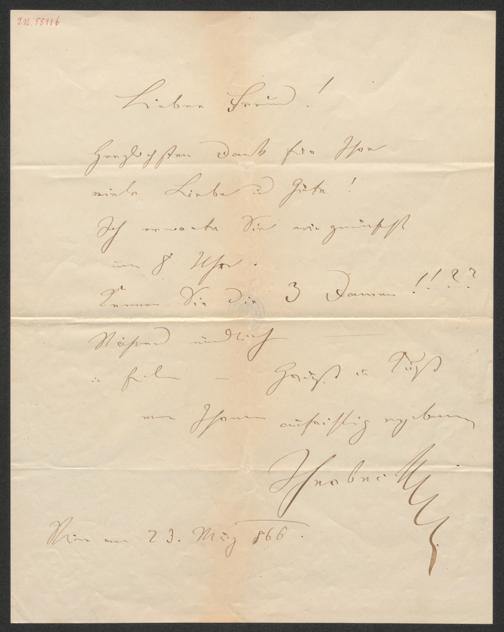 Lieber Freund!
Herzlichsten Dank für Ihre
viele Liebe u Güte!
Ich erwarte Sie wie gewünscht
um 8 Uhr.
Kennen Sie die 3 Damen!!??
Näheres mündlich
Gruß u Kuß
von Ihrem aufrichtig ergebenen
Wien am 23. März 866.